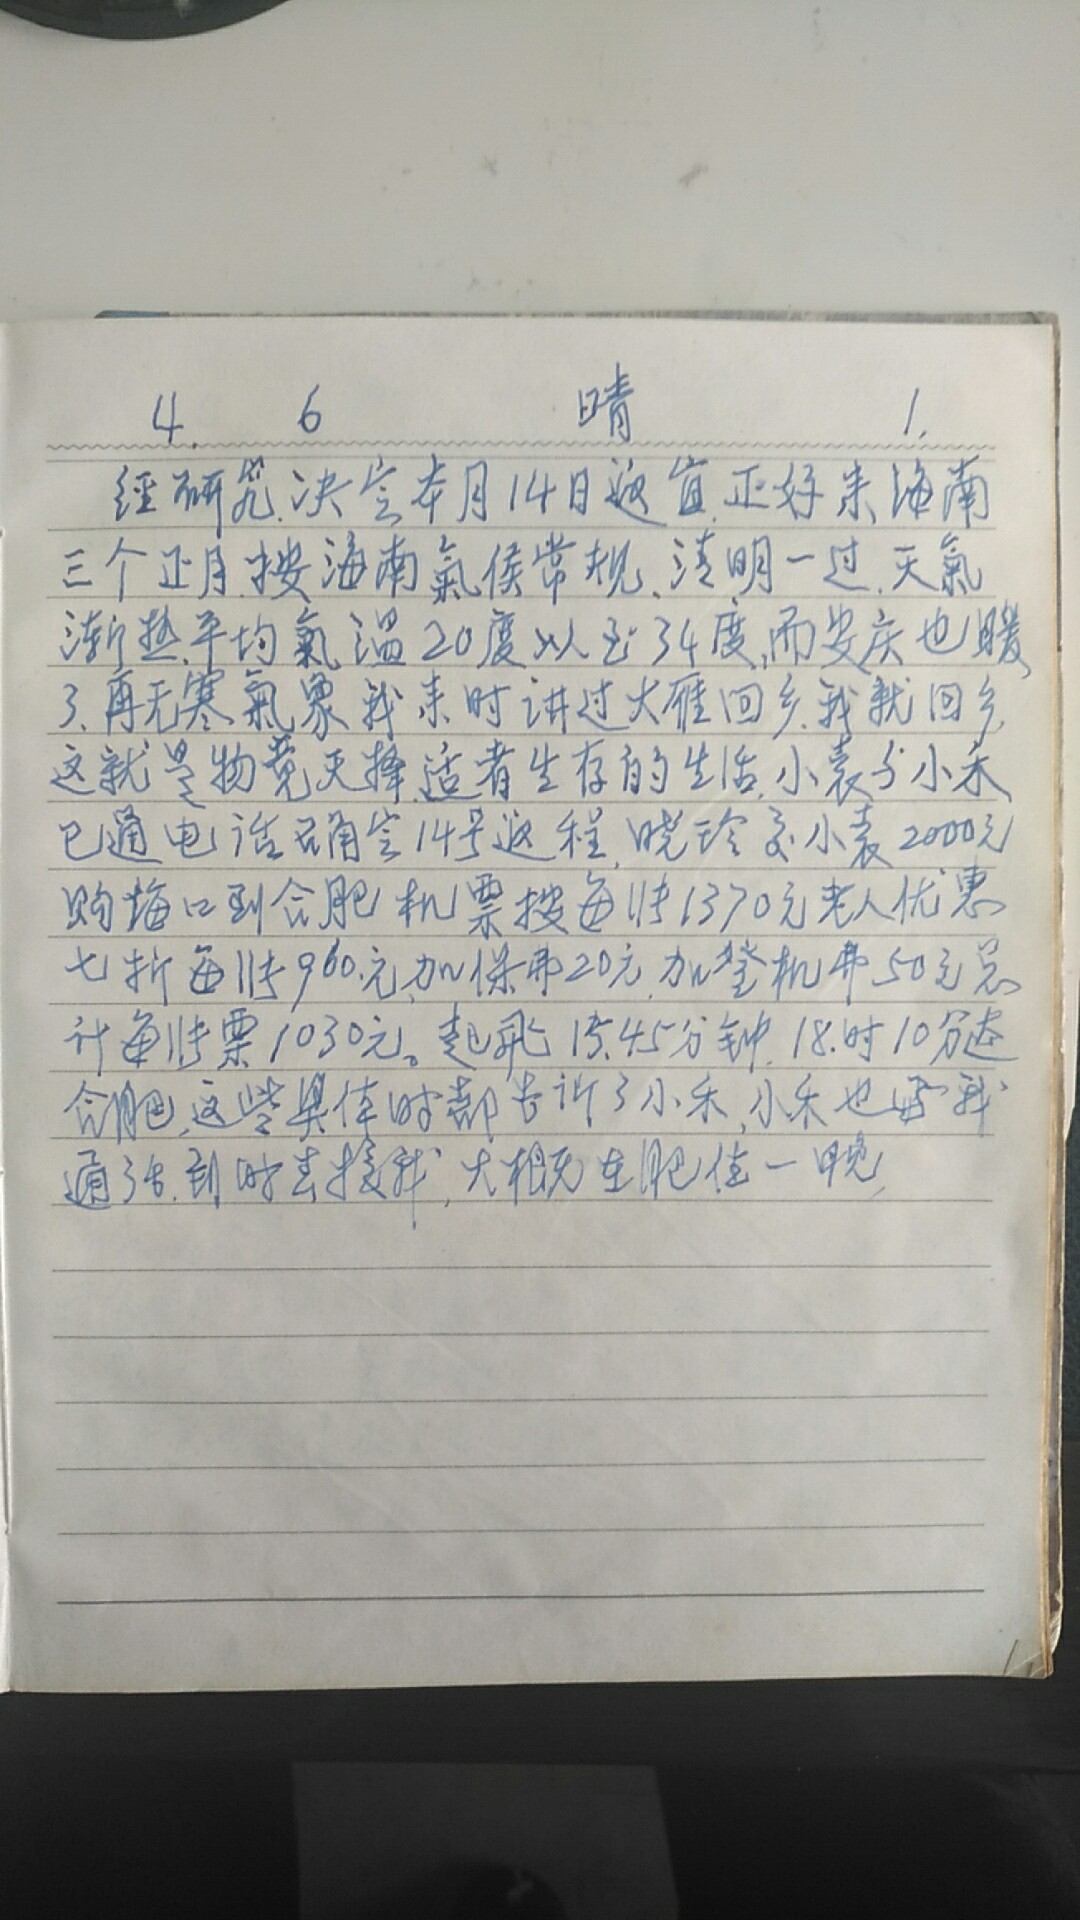 4. 6 晴 1.
经研究、决定本月14日返宜,正好来海南
三个正月,按海南氣侯常规、清明一过,天氣
渐热,平均氣温20度以至34度,而安庆也暖
了、再无寒氣象,我来时讲过大雁回乡,我就回乡,
这就是物竞天择,适者生存的生活,小袁与小禾
已通电话确定14号返程,晓玲交小袁2000元
购海口到合肥机票按每张1370元老人优惠
七折每张960.元,加保费20元,加登机费50元总
计每张票1030元。起飞15.45分钟,18.时10分达
合肥,这些具体时都告诉了小禾,小禾也与我
通了话,到时去接我,大概在肥住一晚,